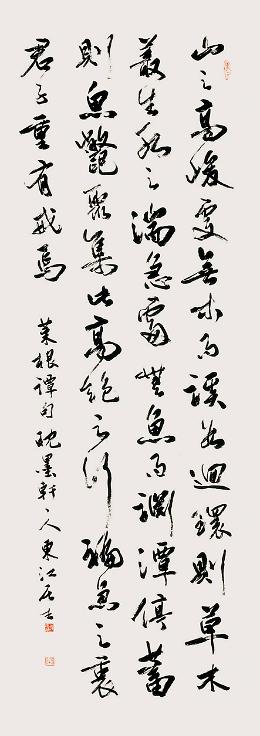 山之高峻處無木而谿谷迴環則草木
叢生水之湍急處無魚而淵潭停蓄
則魚鼈聚集此高絕之行褊急之衷
君子重有戒焉
菜根譚句 墨軒主人東江